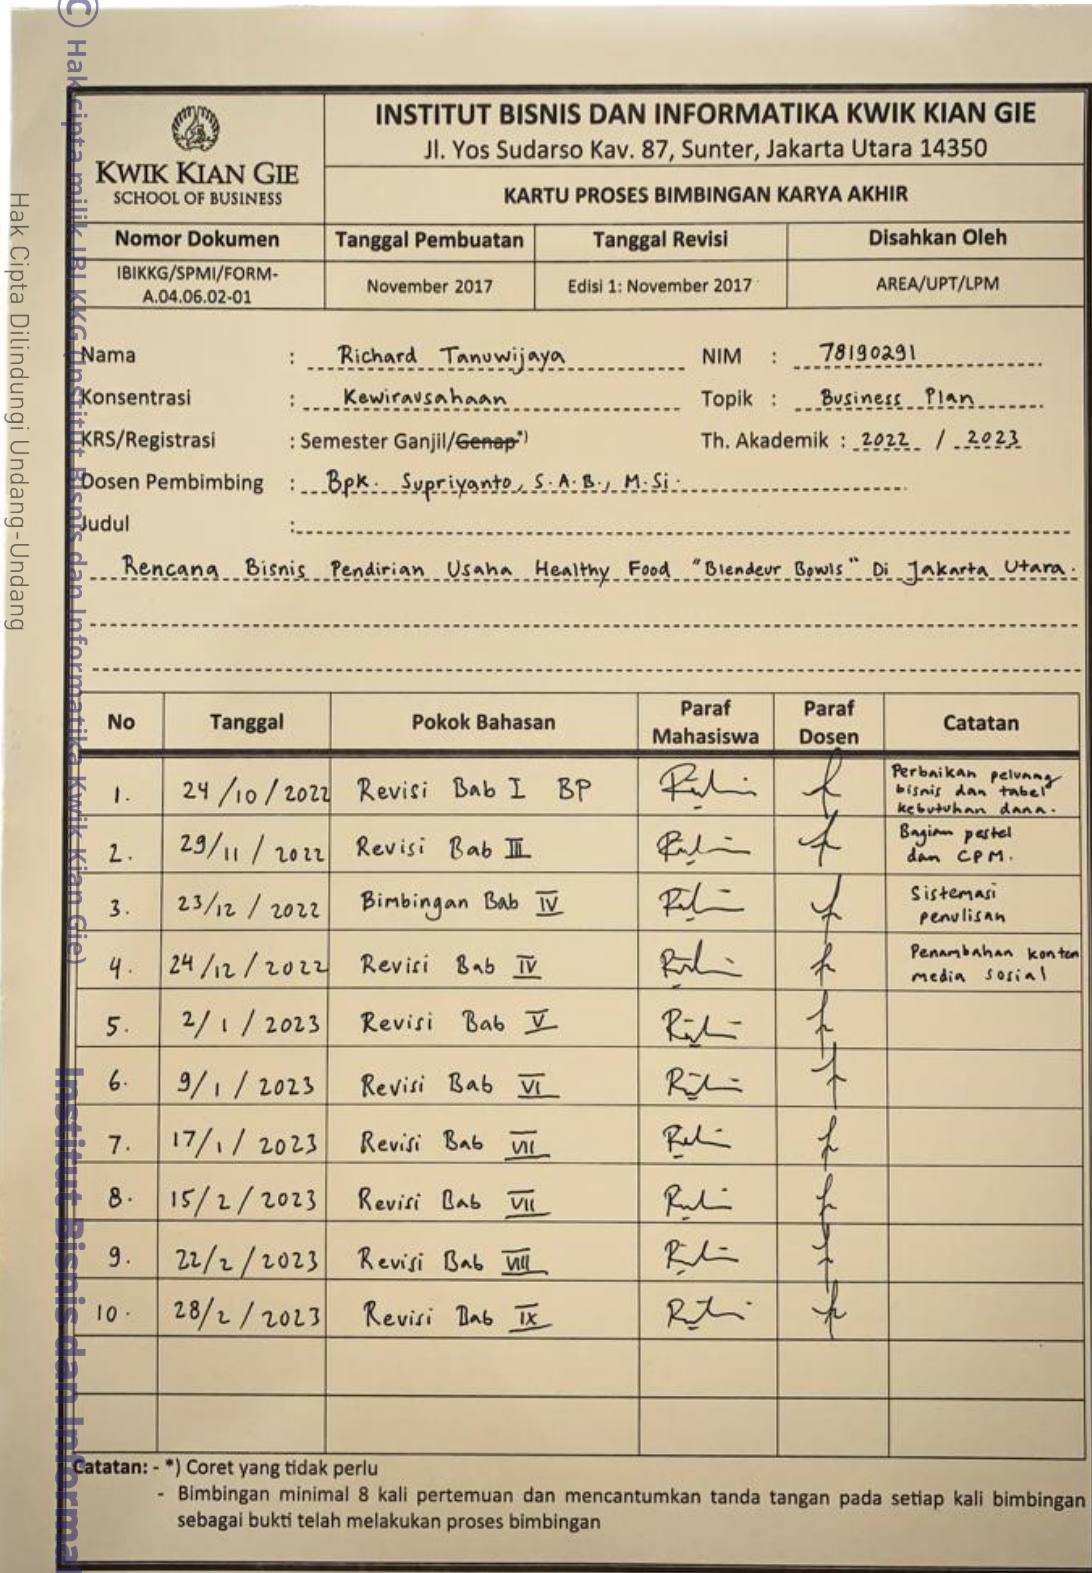 © Hak cipta milik IBI KKG (Institut Bisnis dan Informatika Kwik Kian Gie)
Hak Cipta Dilindungi Undang-Undang
Institut Bisnis dan Informa
KWIK KIAN GIE
SCHOOL OF BUSINESS
INSTITUT BISNIS DAN INFORMATIKA KWIK KIAN GIE
Jl. Yos Sudarso Kav. 87, Sunter, Jakarta Utara 14350
KARTU PROSES BIMBINGAN KARYA AKHIR
Nomor Dokumen Tanggal Pembuatan Tanggal Revisi Disahkan Oleh
IBIKKG/SPMI/FORM-
A.04.06.02-01 November 2017 Edisi 1: November 2017 AREA/UPT/LPM
Nama : Richard Tanuwijaya NIM : 78190291
Konsentrasi : Kewirausahaan Topik : Business Plan
KRS/Registrasi : Semester Ganjil/Genap*) Th. Akademik : 2022 / 2023
Dosen Pembimbing : Bpk. Supriyanto, S.A.B., M.Si.
Judul :
Rencana Bisnis Pendirian Usaha Healthy Food "Blendeur Bowls" Di Jakarta Utara.
No Tanggal Pokok Bahasan Paraf Mahasiswa Paraf Dosen Catatan
1. 24/10/2022 Revisi Bab I BP Perbaikan peluang
bisnis dan tabel
kebutuhan dana.
2. 29/11/2022 Revisi Bab III Bagian pestel
dan CPM.
3. 23/12/2022 Bimbingan Bab IV Sistemasi
penulisan
4. 24/12/2022 Revisi Bab IV Penambahan konten
media sosial
5. 2/1/2023 Revisi Bab V
6. 9/1/2023 Revisi Bab VI
7. 17/1/2023 Revisi Bab VII
8. 15/2/2023 Revisi Bab VII
9. 22/2/2023 Revisi Bab VIII
10. 28/2/2023 Revisi Bab IX
Catatan: - *) Coret yang tidak perlu
- Bimbingan minimal 8 kali pertemuan dan mencantumkan tanda tangan pada setiap kali bimbingan
sebagai bukti telah melakukan proses bimbingan